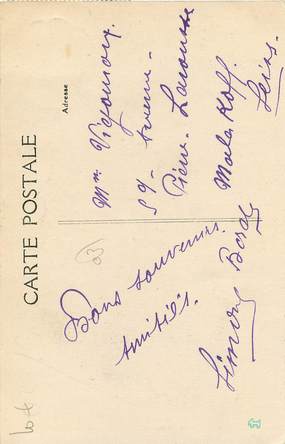 CARTE POSTALE
Adresse
Mme Vigouroux
59 - Avenue -
Pierre - Larousse
Malakoff.
Seine.
03
Bons souvenirs.
Amitiés.
Simone